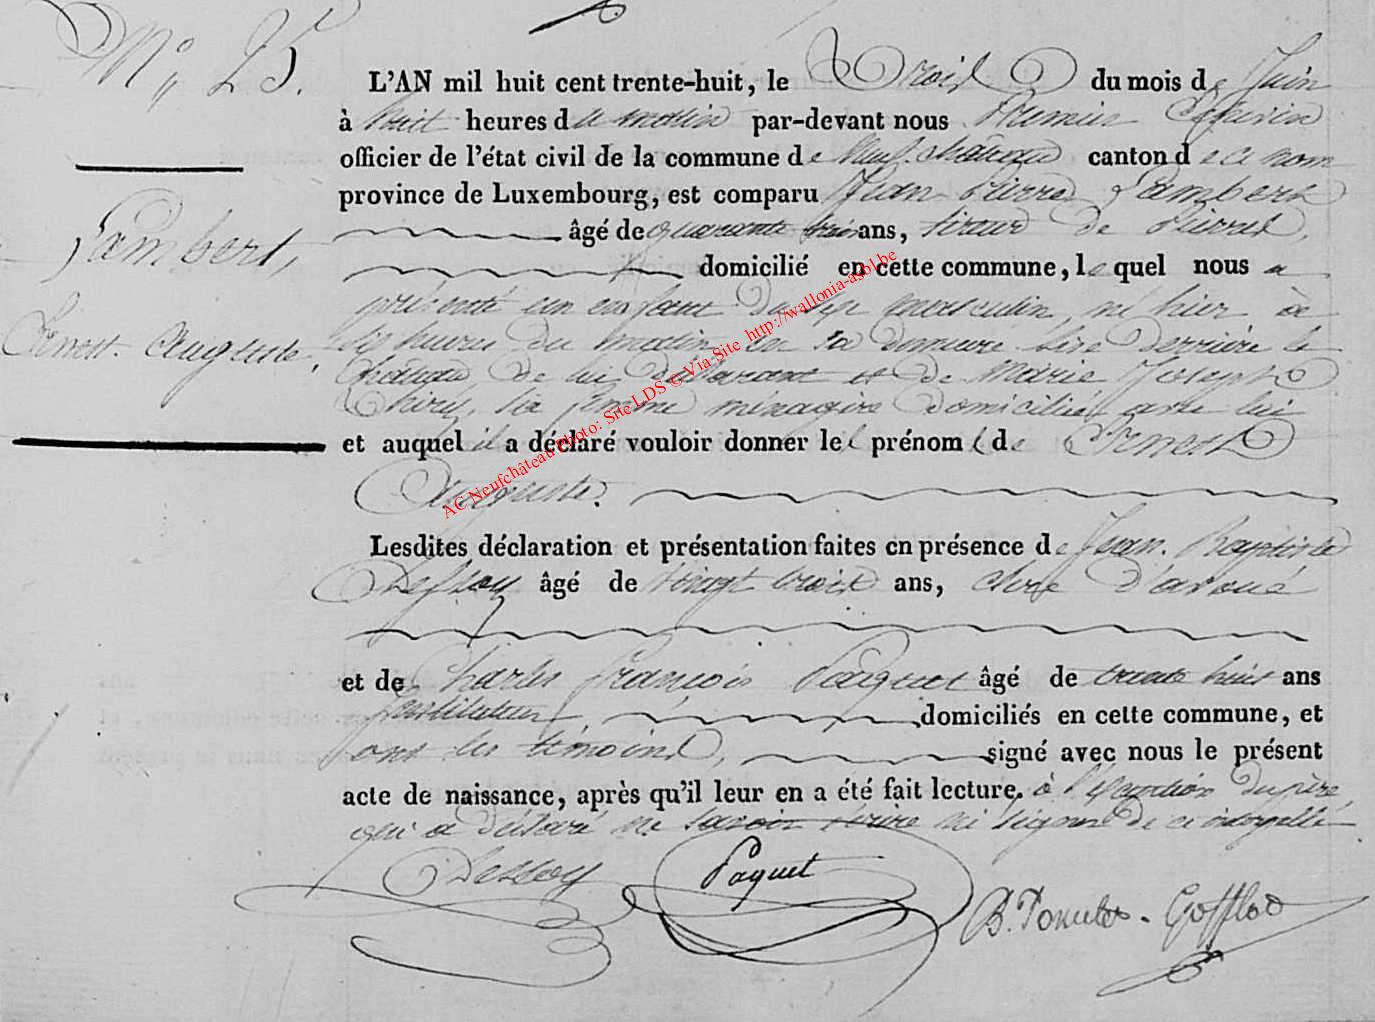 N° 25.
Lambert,
Ernest Auguste,
L'AN mil huit cent trente-huit, le Trois du mois de Juin
à huit heures du matin par-devant nous Premier Echevin
officier de l'état civil de la commune de Neufchâteau canton de ce nom
province de Luxembourg, est comparu Jean Pierre Lambert
âgé de quarante ans, tireur de Pierres,
domicilié en cette commune, lequel nous a
présenté un enfant du sexe masculin, né hier à
heures du matin, en sa demeure sise derrière le
château, de lui déclarant et de Marie Joseph
Thiry, sa femme ménagère domiciliée avec lui
et auquel il a déclaré vouloir donner les prénoms de Ernest
Auguste.
Lesdites déclaration et présentation faites en présence de Jean Baptiste
Dessoy âgé de vingt trois ans, clerc d'avoué
et de Charles François Paquet âgé de trente huit ans
Instituteur, domiciliés en cette commune, et
ont les témoins, signé avec nous le présent
acte de naissance, après qu'il leur en a été fait lecture. à l'exception du père
qui a déclaré ne savoir écrire ni signer de ce interpellé
Dessoy Paquet B. Poncelet-Gofflot
AC Neufchâteau Photo: Site LDS © Via-Site http://wallonia-asbl.be